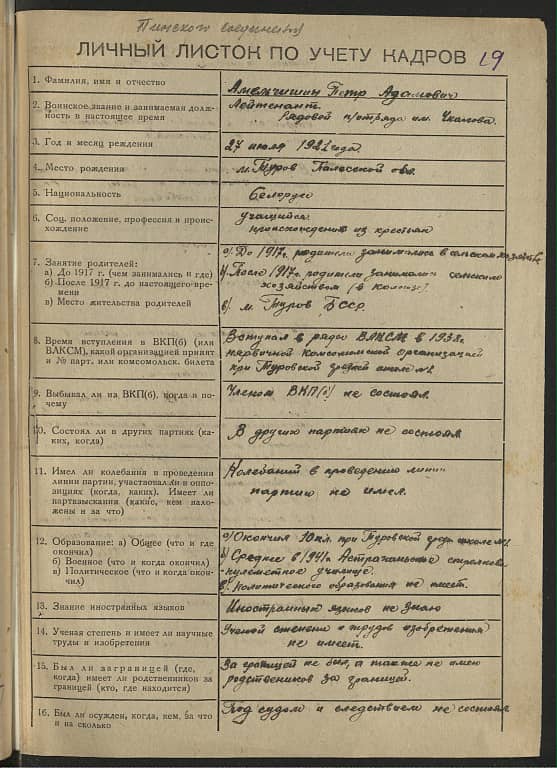 Пинского соединения
ЛИЧНЫЙ ЛИСТОК ПО УЧЕТУ КАДРОВ 19
1. Фамилия, имя и отчество
Амельчишин Петр Адамович
2. Воинское звание и занимаемая долж-
ность в настоящее время
Лейтенант.
Рядовой п/отряда им. Чкалова.
3. Год и месяц рождения
27 июля 1921 года
4. Место рождения
м. Туров Полесской обл.
5. Национальность
Белорус
6. Соц. положение, профессия и проис-
хождение
Учащийся
происхождения из крестьян
7. Занятие родителей:
а) До 1917 г. (чем занимались и где)
б) После 1917 г. до настоящего вре-
мени
в) Место жительства родителей
а) До 1917г. родители занимались в сельском хозяйстве
б) После 1917г. родители занимались сельским
хозяйством (в колхозе)
в) м. Туров БССР.
8. Время вступления в ВКП(б) (или
ВЛКСМ), какой организацией принят
и № парт. или комсомольск. билета
Вступал в ряды ВЛКСМ в 1938г.
первичной Комсомольской организацией
при Туровской средней школе №1
9. Выбывал ли из ВКП(б), когда и по-
чему
Членом ВКП(б) не состоял.
10. Состоял ли в других партиях (ка-
ких, когда)
В других партиях не состоял
11. Имел ли колебания в проведении
линии партии, участвовал ли в оппо-
зициях (когда, каких). Имеет ли
партвзыскания (какие, кем нало-
жены и за что)
Колебаний в проведению линии
партию не имел.
12. Образование: а) Общее (что и где
окончил)
б) Военное (что и когда окончил)
в) Политическое (что и когда окон-
чил)
а) Окончил 10 кл. при Туровской средн школе №1
б) Среднее в 1941г. Астраханьское стрелково
пулеметное училище.
в) Политического образования не имеет.
13. Знание иностранных языков
Иностранных языков не знаю
14. Ученая степень и имеет ли научные
труды и изобретения
Ученой степени и трудов изобретения
не имеет.
15. Был ли заграницей (где,
когда) имеет ли родственников за
границей (кто, где находится)
За границей не был, а также не имею
родственников за границей.
16. Был ли осужден, когда, кем, за что
и на сколько
Под судом и следствием не состоял